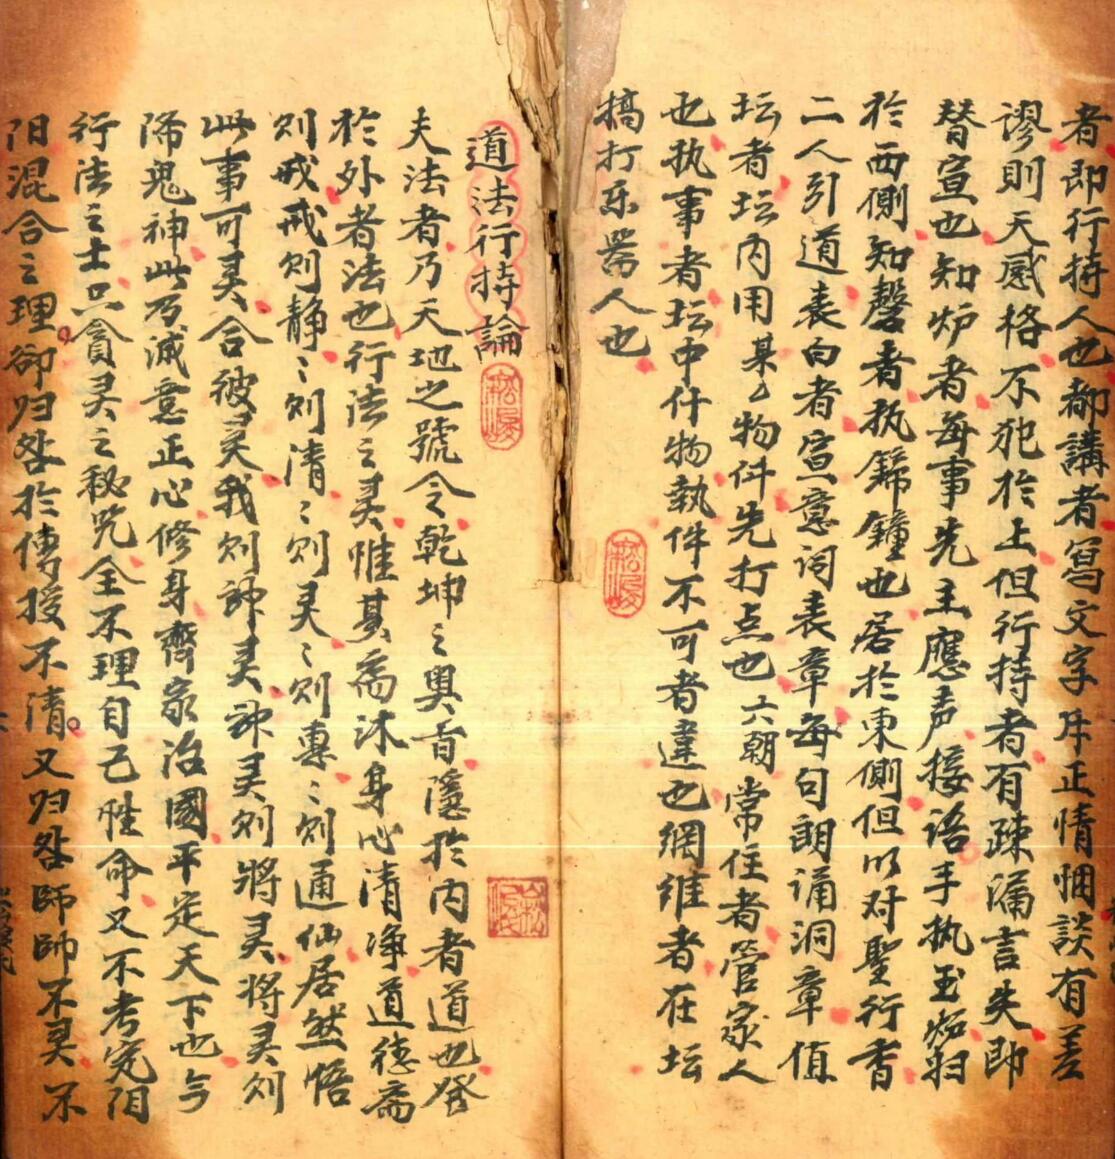 者即行持人也都講者寫文字并正情悃談有差
謬則天感格不犯於上但行持者有疎漏言失即
替宣也知炉者每事先主應声接语手执玉炉归
於西側知磬者执錫鐘也居於東側但以对聖行香
二人引道表白者宣意词表章每句朗诵洞章值
坛者坛内用某〻物件先打点也六朝常住者管家人
也执事者坛中什物執件不可者違也網维者在坛
搞打乐器人也
道法行持論
夫法者乃天地之號令乾坤之奥旨隱於内者道也發
於外者法也行法之灵惟其斋沐身心清净道德斋
则戒戒则静〻则清〻则灵〻则專〻则通仙居然悟
此事可灵合彼灵我则神灵神灵则將灵将灵则
隂鬼神此乃诚意正心修身齊家治國平定天下也今
行法之士只貪灵之秘咒全不理自己性命又不考究阴
阳混合之理卻归咎於傳授不清又归咎師師不灵不